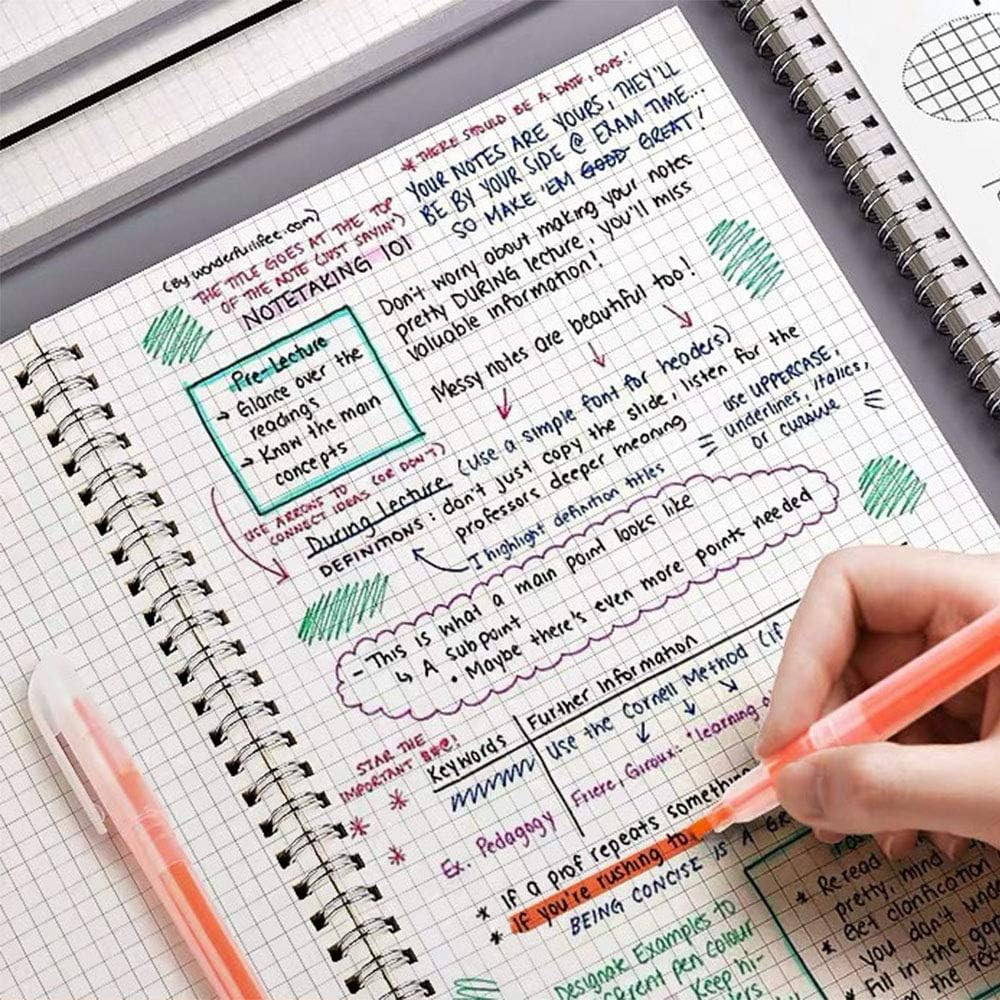 * THERE SHOULD BE A DATE, OOPS!
YOUR NOTES ARE YOURS, THEY'LL
BE BY YOUR SIDE @ EXAM TIME...
SO MAKE 'EM GOOD GREAT!
(By wonderfulllifee.com)
THE TITLE GOES AT THE TOP
OF THE NOTE (JUST SAYIN')
NOTETAKING 101
Don't worry about making your notes
pretty DURING lecture, you'll miss
valuable information!
Messy notes are beautiful too!
Pre-Lecture
→ Glance over the
readings
→ Know the main
concepts
USE ARROWS TO
CONNECT IDEAS (OR DON'T)
During Lecture (use a simple font for headers)
DEFINITIONS: don't just copy the slide, listen for the
professors deeper meaning
I highlight definition titles
use UPPERCASE,
underlines, italics,
or cursive
- This is what a main point looks like
↳ A subpoint
. Maybe there's even more points needed
STAR THE
IMPORTANT
Keywords
Further Information
Use the Cornell Method (if
Ex. Pedagogy
Friere, Giroux: "learning
* If a prof repeats something
* If you're rushing to
BEING CONCISE IS A
Designate Examples to
pen colour
Keep hi-
* Re-read
pretty, mind
* Get clarification
you don't
* Fill in the
the